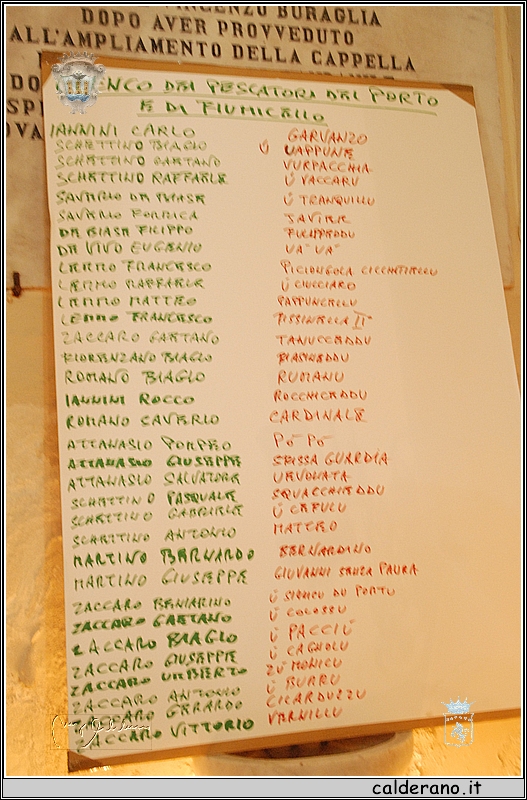 VINCENZO BURAGLIA
DOPO AVER PROVVEDUTO
ALL'AMPLIAMENTO DELLA CAPPELLA
ELENCO DEI PESCATORI DEL PORTO
E DI FIUMICELLO
IANNINI CARLO GARVANZO
SCHETTINO BIAGIO Ú UAPPUNE
SCHETTINO GAETANO VURPACCHIA
SCHETTINO RAFFAELE Ú VACCARU
SAVERIO DE BIASE Ú TRANQUILLU
SAVERIO FORMICA SAVIERE
DE BIASE FILIPPO
DE VIVO EUGENIO VA' VA'
LEMMO FRANCESCO PICIONGOLA
LEMMO RAFFAELE Ú CIUCCIARO
LEMMO MATTEO PAPPUNCELLU
LEMMO FRANCESCO PISSINELLA II°
ZACCARO GAETANO TANUCCEDDU
FIORENZANO BIAGIO BIASIEDDU
ROMANO BIAGIO RUMANU
IANNINI ROCCO ROCCHICEDDU
ROMANO SAVERIO CARDINALE
ATTANASIO POMPEO PÓ PÓ
ATTANASIO GIUSEPPE SPISSA GUARDIA
ATTANASIO SALVATORE URVOLATA
SCHETTINO PASQUALE SQUACCHIEDDU
SCHETTINO GABRIELE Ú CEFULU
SCHETTINO ANTONIO MATTEO
MARTINO BERNARDO BERNARDINO
MARTINO GIUSEPPE GIOVANNI SENZA PAURA
ZACCARO BENIAMINO Ú SINNCO DU PORTU
ZACCARO GAETANO Ú COLOSSU
ZACCARO BIAGIO Ú PACCIÚ
ZACCARO GIUSEPPE Ú CAGNOLU
ZACCARO UMBERTO ZÚ MONICU
ZACCARO ANTONIO Ú BURRU
ZACCARO GERARDO CICARDUZZU
ZACCARO VITTORIO VARNILLU
calderano.it